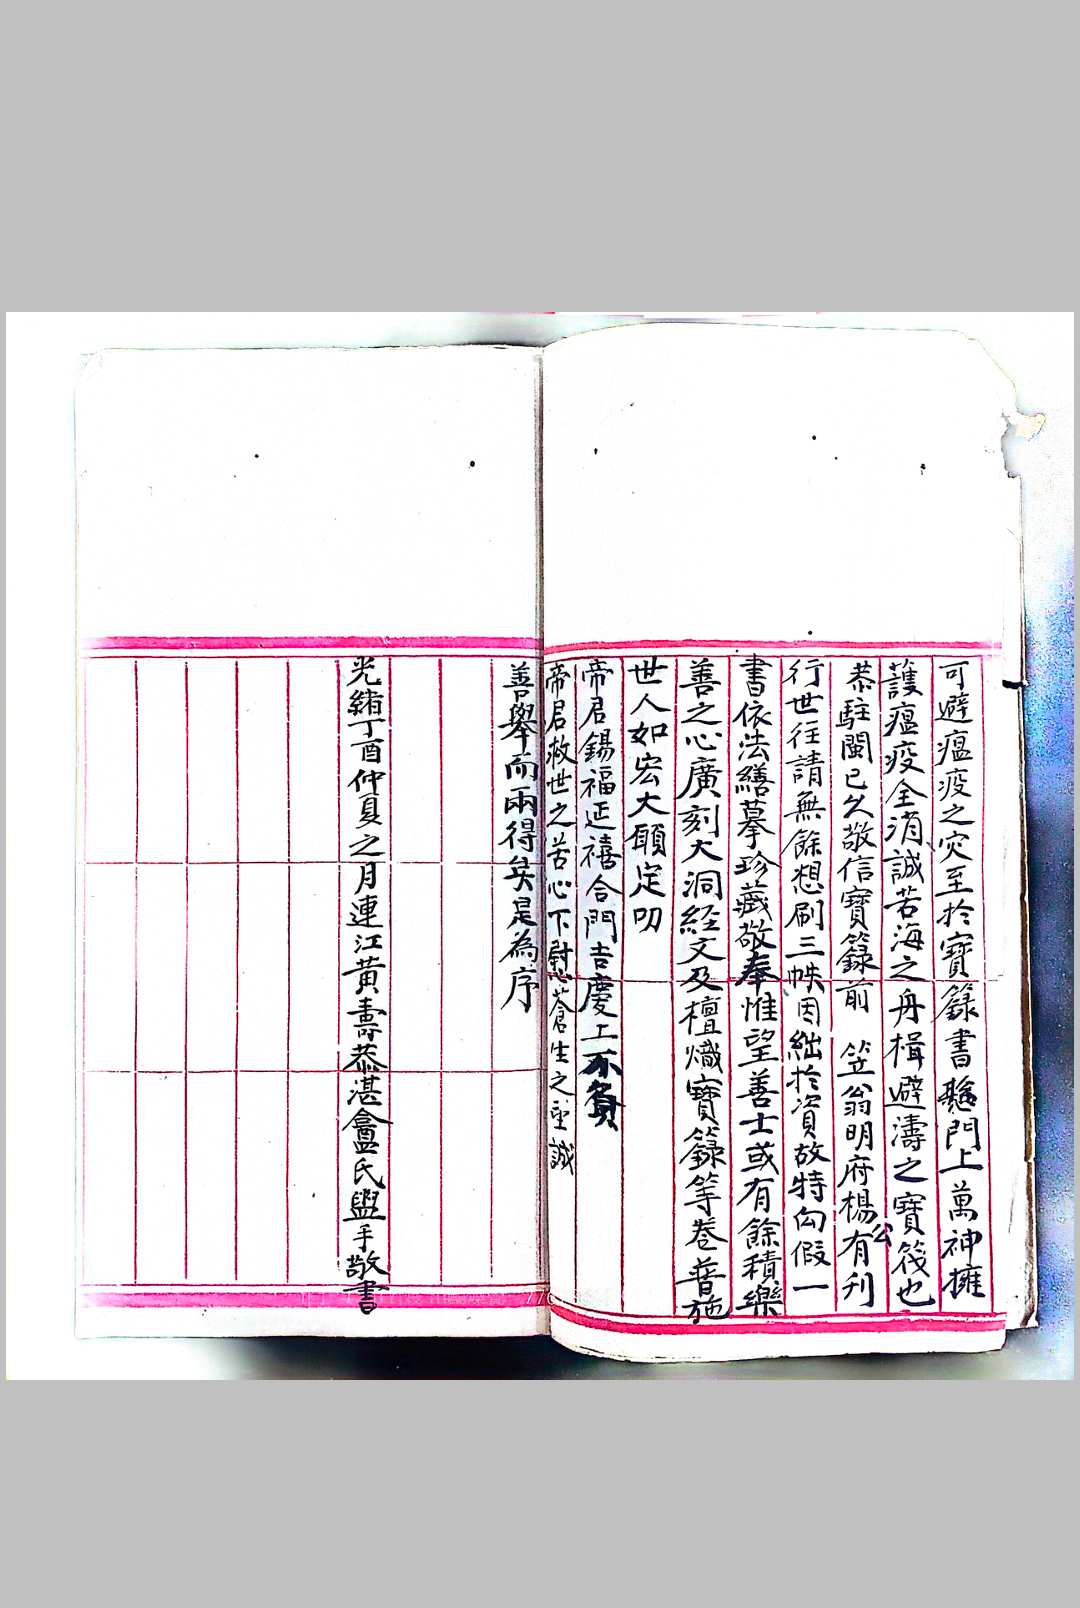 可避瘟疫之灾至扵寶籙書懸門上萬神擁
護瘟疫全消誠苦海之舟楫避濤之寶筏也
恭駐閩已久敬信寶籙前 笠翁明府楊公有刋
行世往請無餘想刷三帙因絀扵資故特向假一
書依法繕摹珍藏敬奉惟望善士或有餘積樂
善之心廣刻大洞經文及檀熾寶籙等卷普施
世人如宏大願定叨
帝君錫福延禧合門吉慶上不負
帝君救世之苦心下慰蒼生之至誠
善舉而兩得矣是為序
光緒丁酉仲夏之月連江黃壽恭湛盦氏盥手敬書